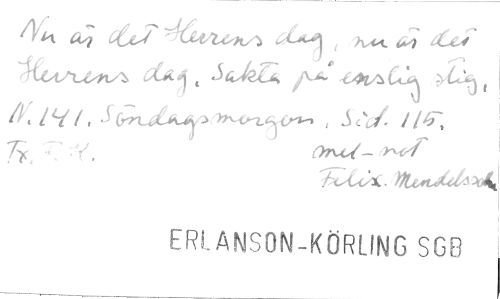 Nu är det Herrens dag, nu är det
Herrens dag. Sakta på enslig stig,
N. 141. Söndagsmorgon. Sid. 115.
Tx. F. K.
mel-not
Felix. Mendelssohn
ERLANSON-KÖRLING SGB